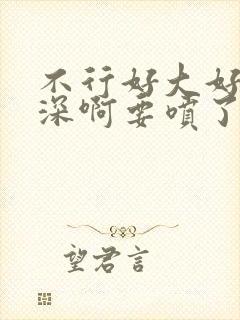 不行好大好
深啊要喷了
望君言